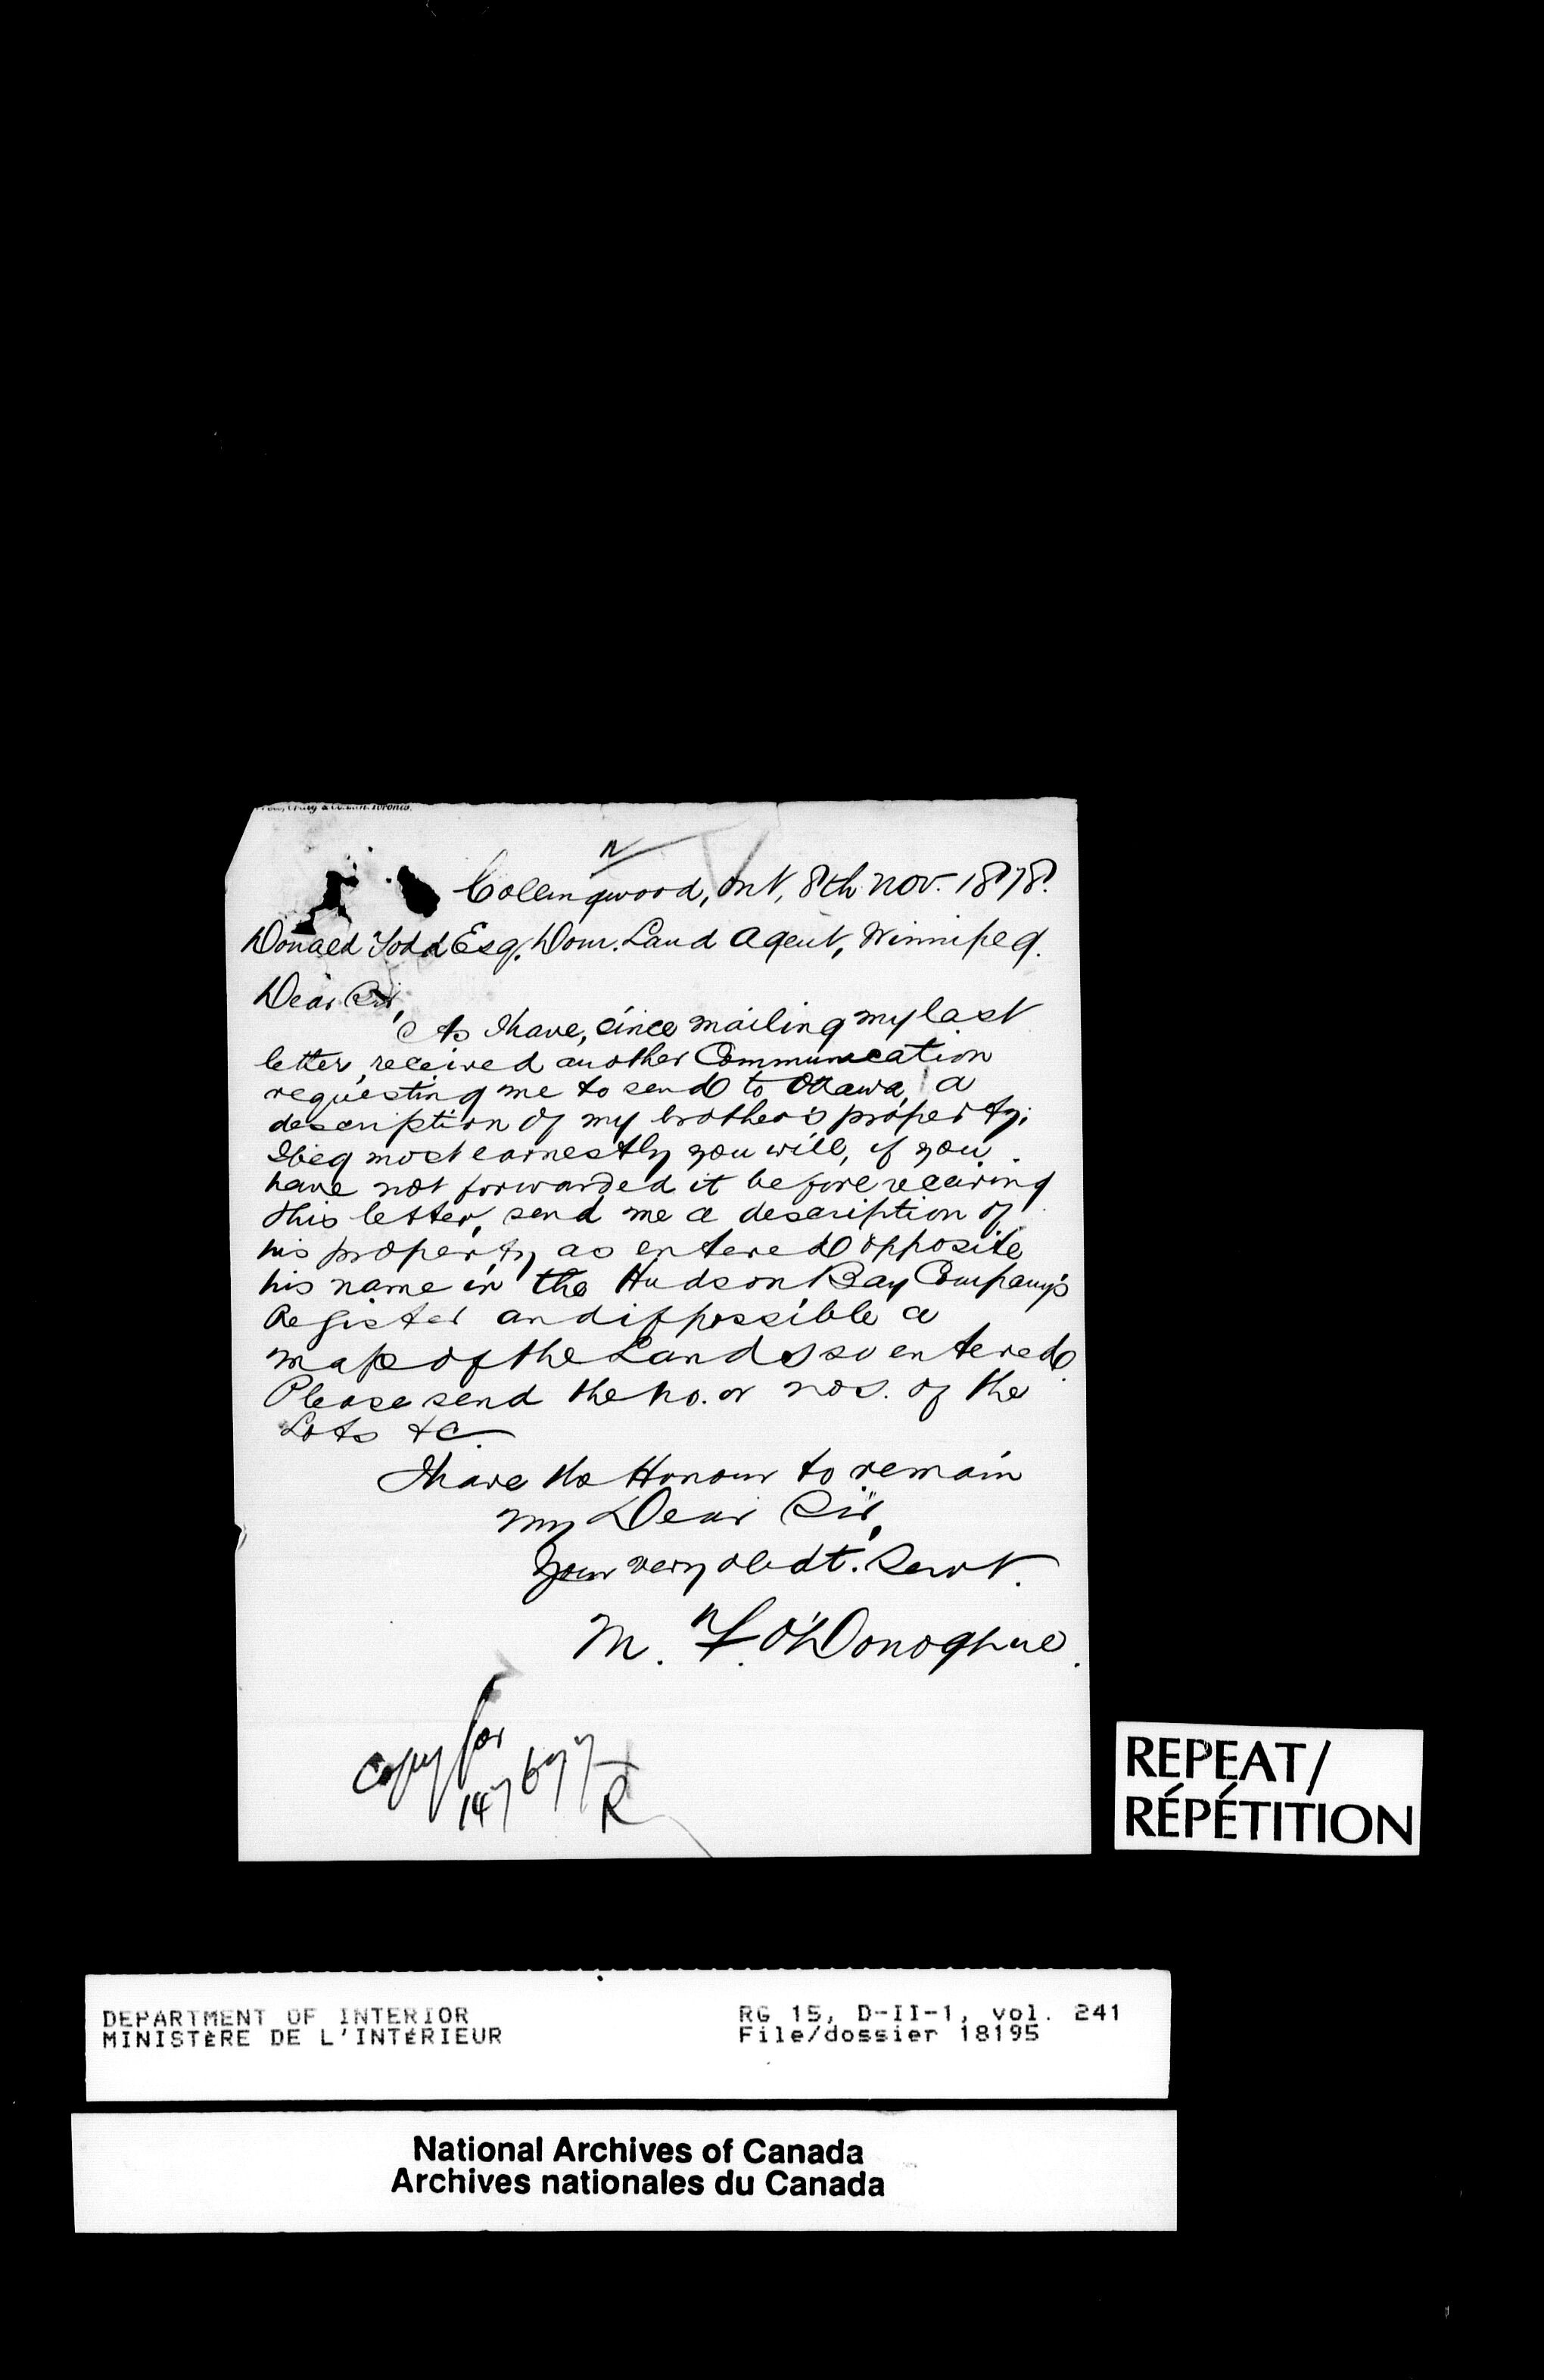 Craig & Co. Lith. Toronto.
Collingwood, Ont, 8th Nov. 1878.
Donald Todd Esq. Dom. Land Agent, Winnipeg.
Dear Sir,
As I have, since mailing my last
letter, received another Communication
requesting me to send to Ottawa, a
description of my brother's property;
I beg most earnestly you will, if you
have not forwarded it before receiving
this letter, send me a description of
his property as entered opposite
his name in the Hudson Bay Company's
Register and if possible a
map of the Lands so entered.
Please send the no. or nos. of the
Lots &c.
I have the Honour to remain
My Dear Sir,
Your very obdt. Servt.
M. F. O'Donoghue.
Copy for
147677
R
REPEAT/
RÉPÉTITION
DEPARTMENT OF INTERIOR
MINISTÈRE DE L'INTÉRIEUR
RG 15, D-II-1, vol. 241
File/dossier 18195
National Archives of Canada
Archives nationales du Canada